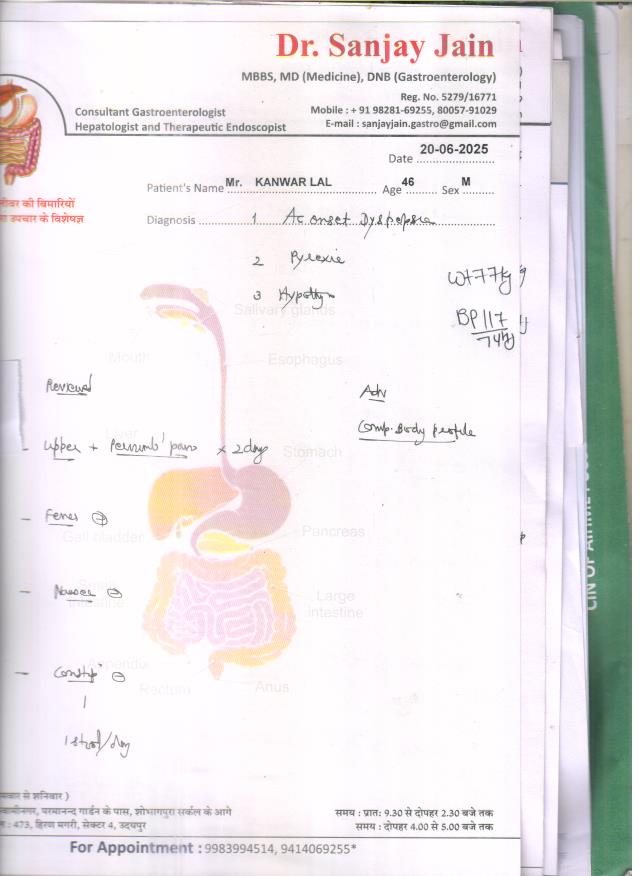 Dr. Sanjay Jain
MBBS, MD (Medicine), DNB (Gastroenterology)
Reg. No. 5279/16771
Consultant Gastroenterologist
Mobile : + 91 98281-69255, 80057-91029
Hepatologist and Therapeutic Endoscopist
E-mail : sanjayjain.gastro@gmail.com
20-06-2025
Date
Patient's Name Mr. KANWAR LAL Age 46 Sex M
की बिमारियों
उपचार के विशेषज्ञ
Diagnosis 1 Ac onset Dyspepsia
2 Pyrexia
3 Hypothy
Wt 77kg
BP 117/74
Salivary glands
Mouth
Esophagus
Reviewed
Adv
Comp. Body profile
Upper + Periumb' pain x 2day
Stomach
Fever ⊕
Gall bladder
Pancreas
Nausea ⊖
Large
intestine
Constip ⊖
Appendix
Rectum
Anus
1
1 stool/day
से शनिवार )
परमानन्द गार्डन के पास, शोभागपुरा सर्कल के आगे
समय : प्रातः 9.30 से दोपहर 2.30 बजे तक
: 473, हिरण मगरी, सेक्टर 4, उदयपुर
समय : दोपहर 4.00 से 5.00 बजे तक
For Appointment : 9983994514, 9414069255*